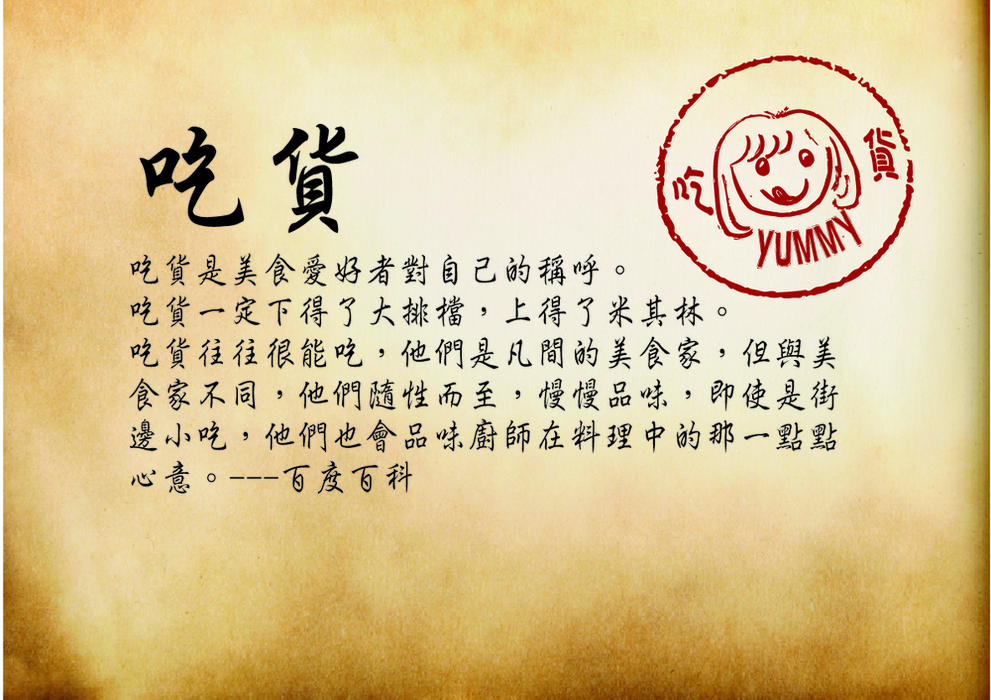 吃貨
吃 貨
YUMMY
吃貨是美食愛好者對自己的稱呼。
吃貨一定下得了大排檔，上得了米其林。
吃貨往往很能吃，他們是凡間的美食家，但與美
食家不同，他們隨性而至，慢慢品味，即使是街
邊小吃，他們也會品味廚師在料理中的那一點點
心意。---百度百科